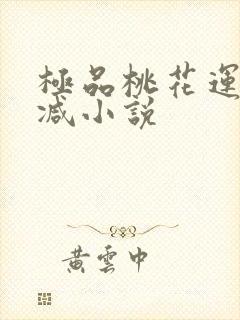 極品桃花運
减小說
黄雲中